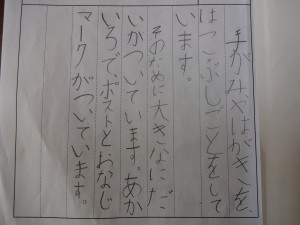 手がみやはがきを、
はこぶしごとをして
います。
そのために大きなにだ
いがついています。あか
いろで、ポストとおなじ
マークがついています。